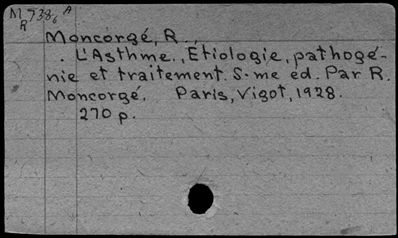 M738₆ A
R
Moncorgé, R.,
. L'Asthme., Etiologie, pathogé-
nie et traitement. 5.me ed. Par R.
Moncorgé. Paris, Vigot, 1928.
270 p.